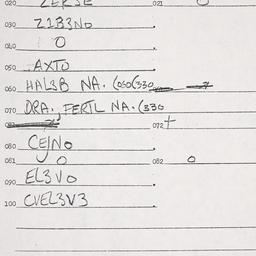 020 ZERSE 021 0
030 Z1B3NO
040 0
050 AXTO
060 HAL3B NA. (050(330
070 DRA, FERTL NA. (330
072 +
080 CEJNO
081 0 082 0
090 EL3VO
100 CVEL3V3